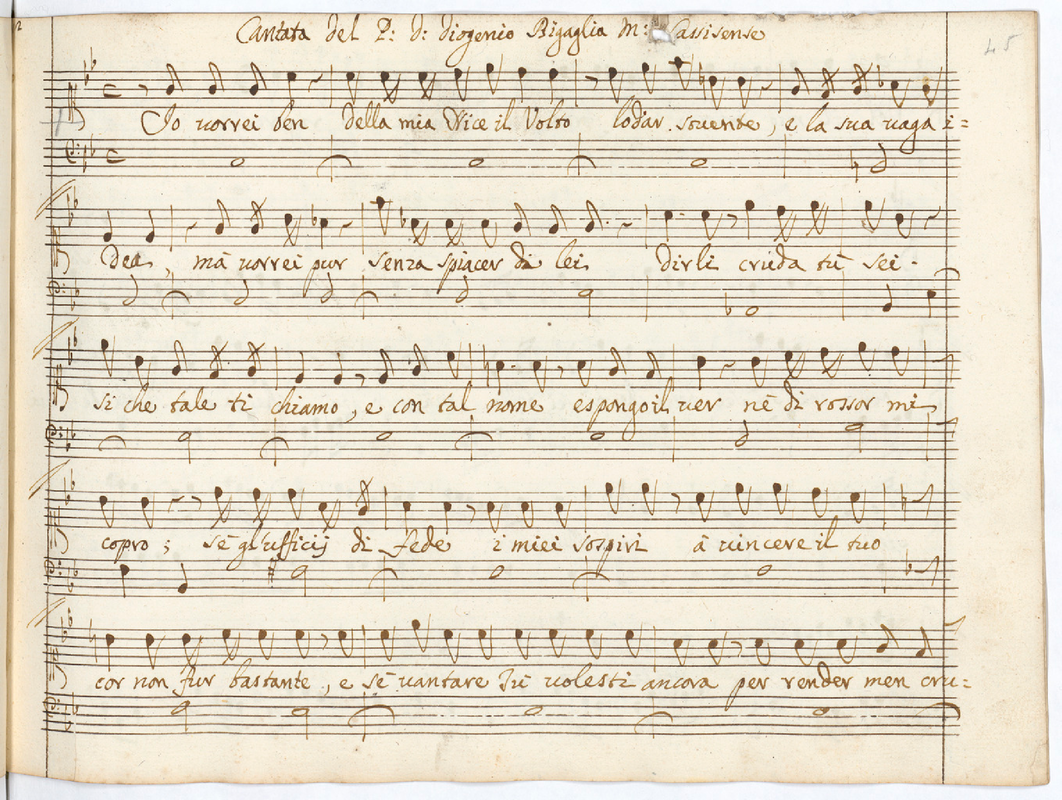 Cantata del P: D: Diogenio Bigaglia M: Cassisense
45
Io vorrei ben della mia Nice il Volto lodar sovente, e la sua vaga i=
dea, mà vorrei pur senza spiacer di lei dirli cruda tù sei
si che tale ti chiamo, e con tal nome espongo il ver nè di rossor mi
copro; sè gl'ufficij di fede i miei sospiri à vincere il tuo
cor non fur bastante, e sè vantare Tù volesti ancora per render men cru=